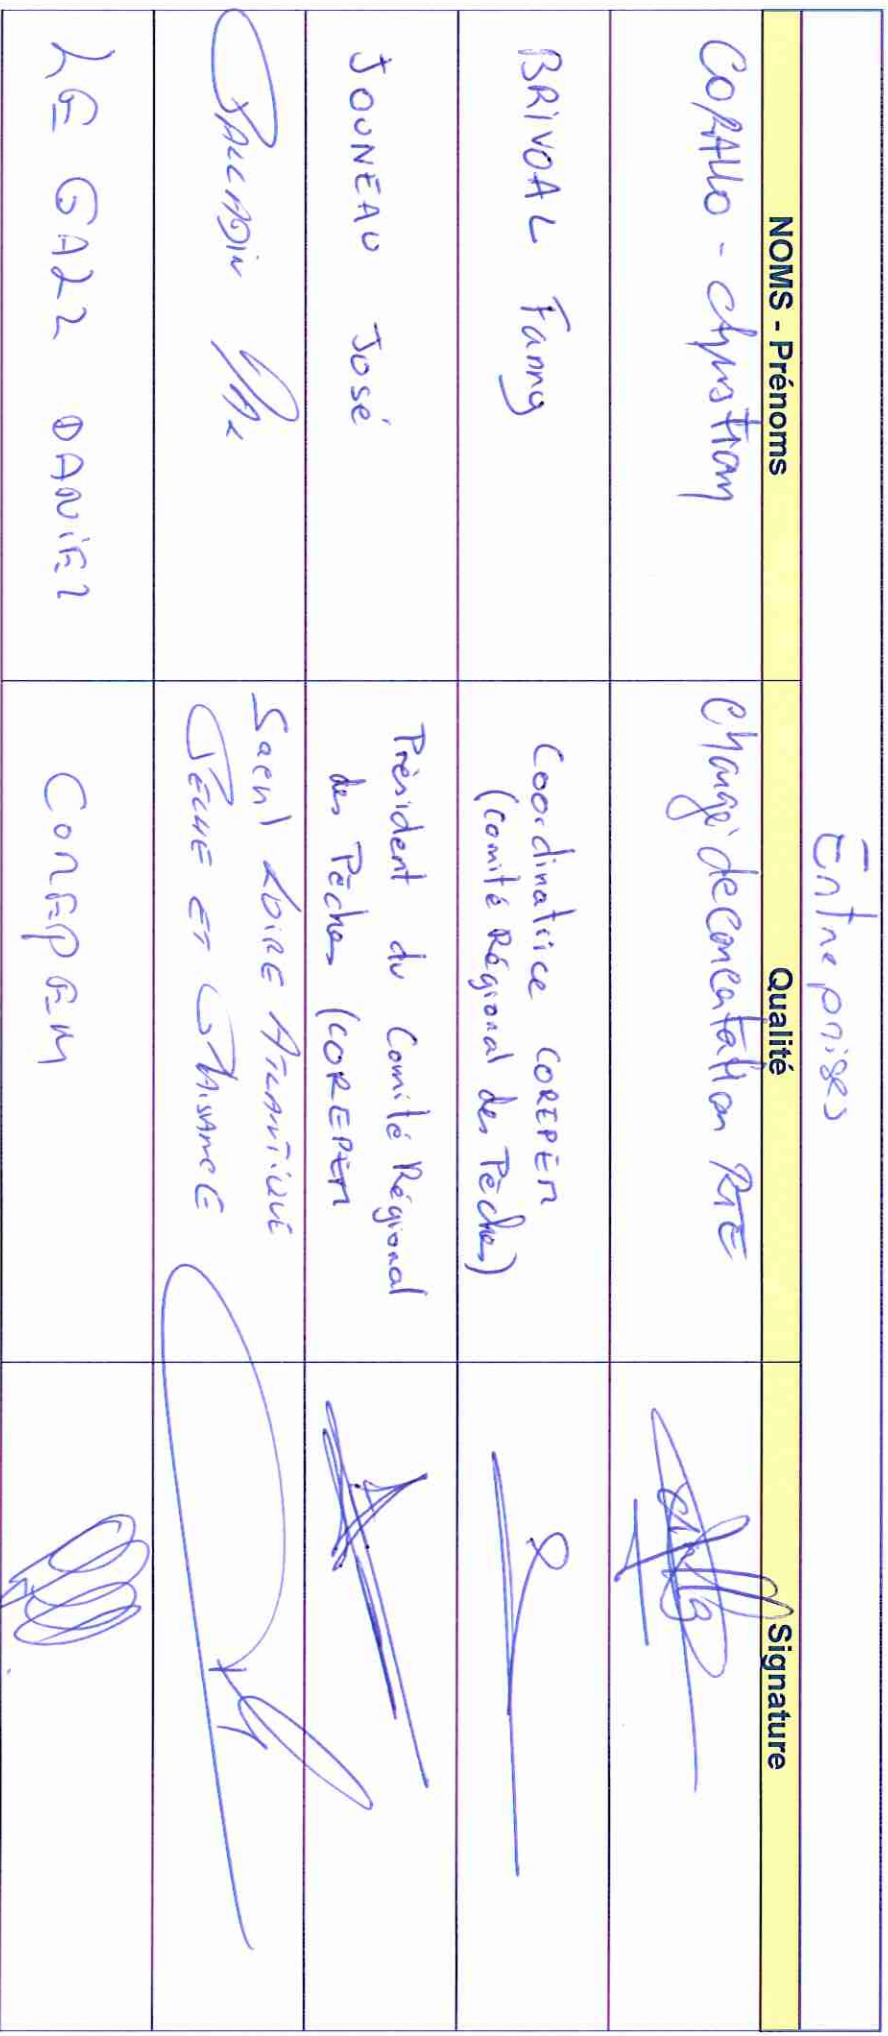 Entreprises
NOMS - Prénoms Qualité Signature
CORALLO - Christian Chargé de concertation RTE
BRIVOAL Fanny Coordinatrice COREPEM
(Comité Régional des Pêches)
JOUNEAU José Président du Comité Régional
des Pêches (COREPEM
LOIRE ATLANTIQUE
PECHE ET PLAISANCE
LE GALL DANIEL COREPEM